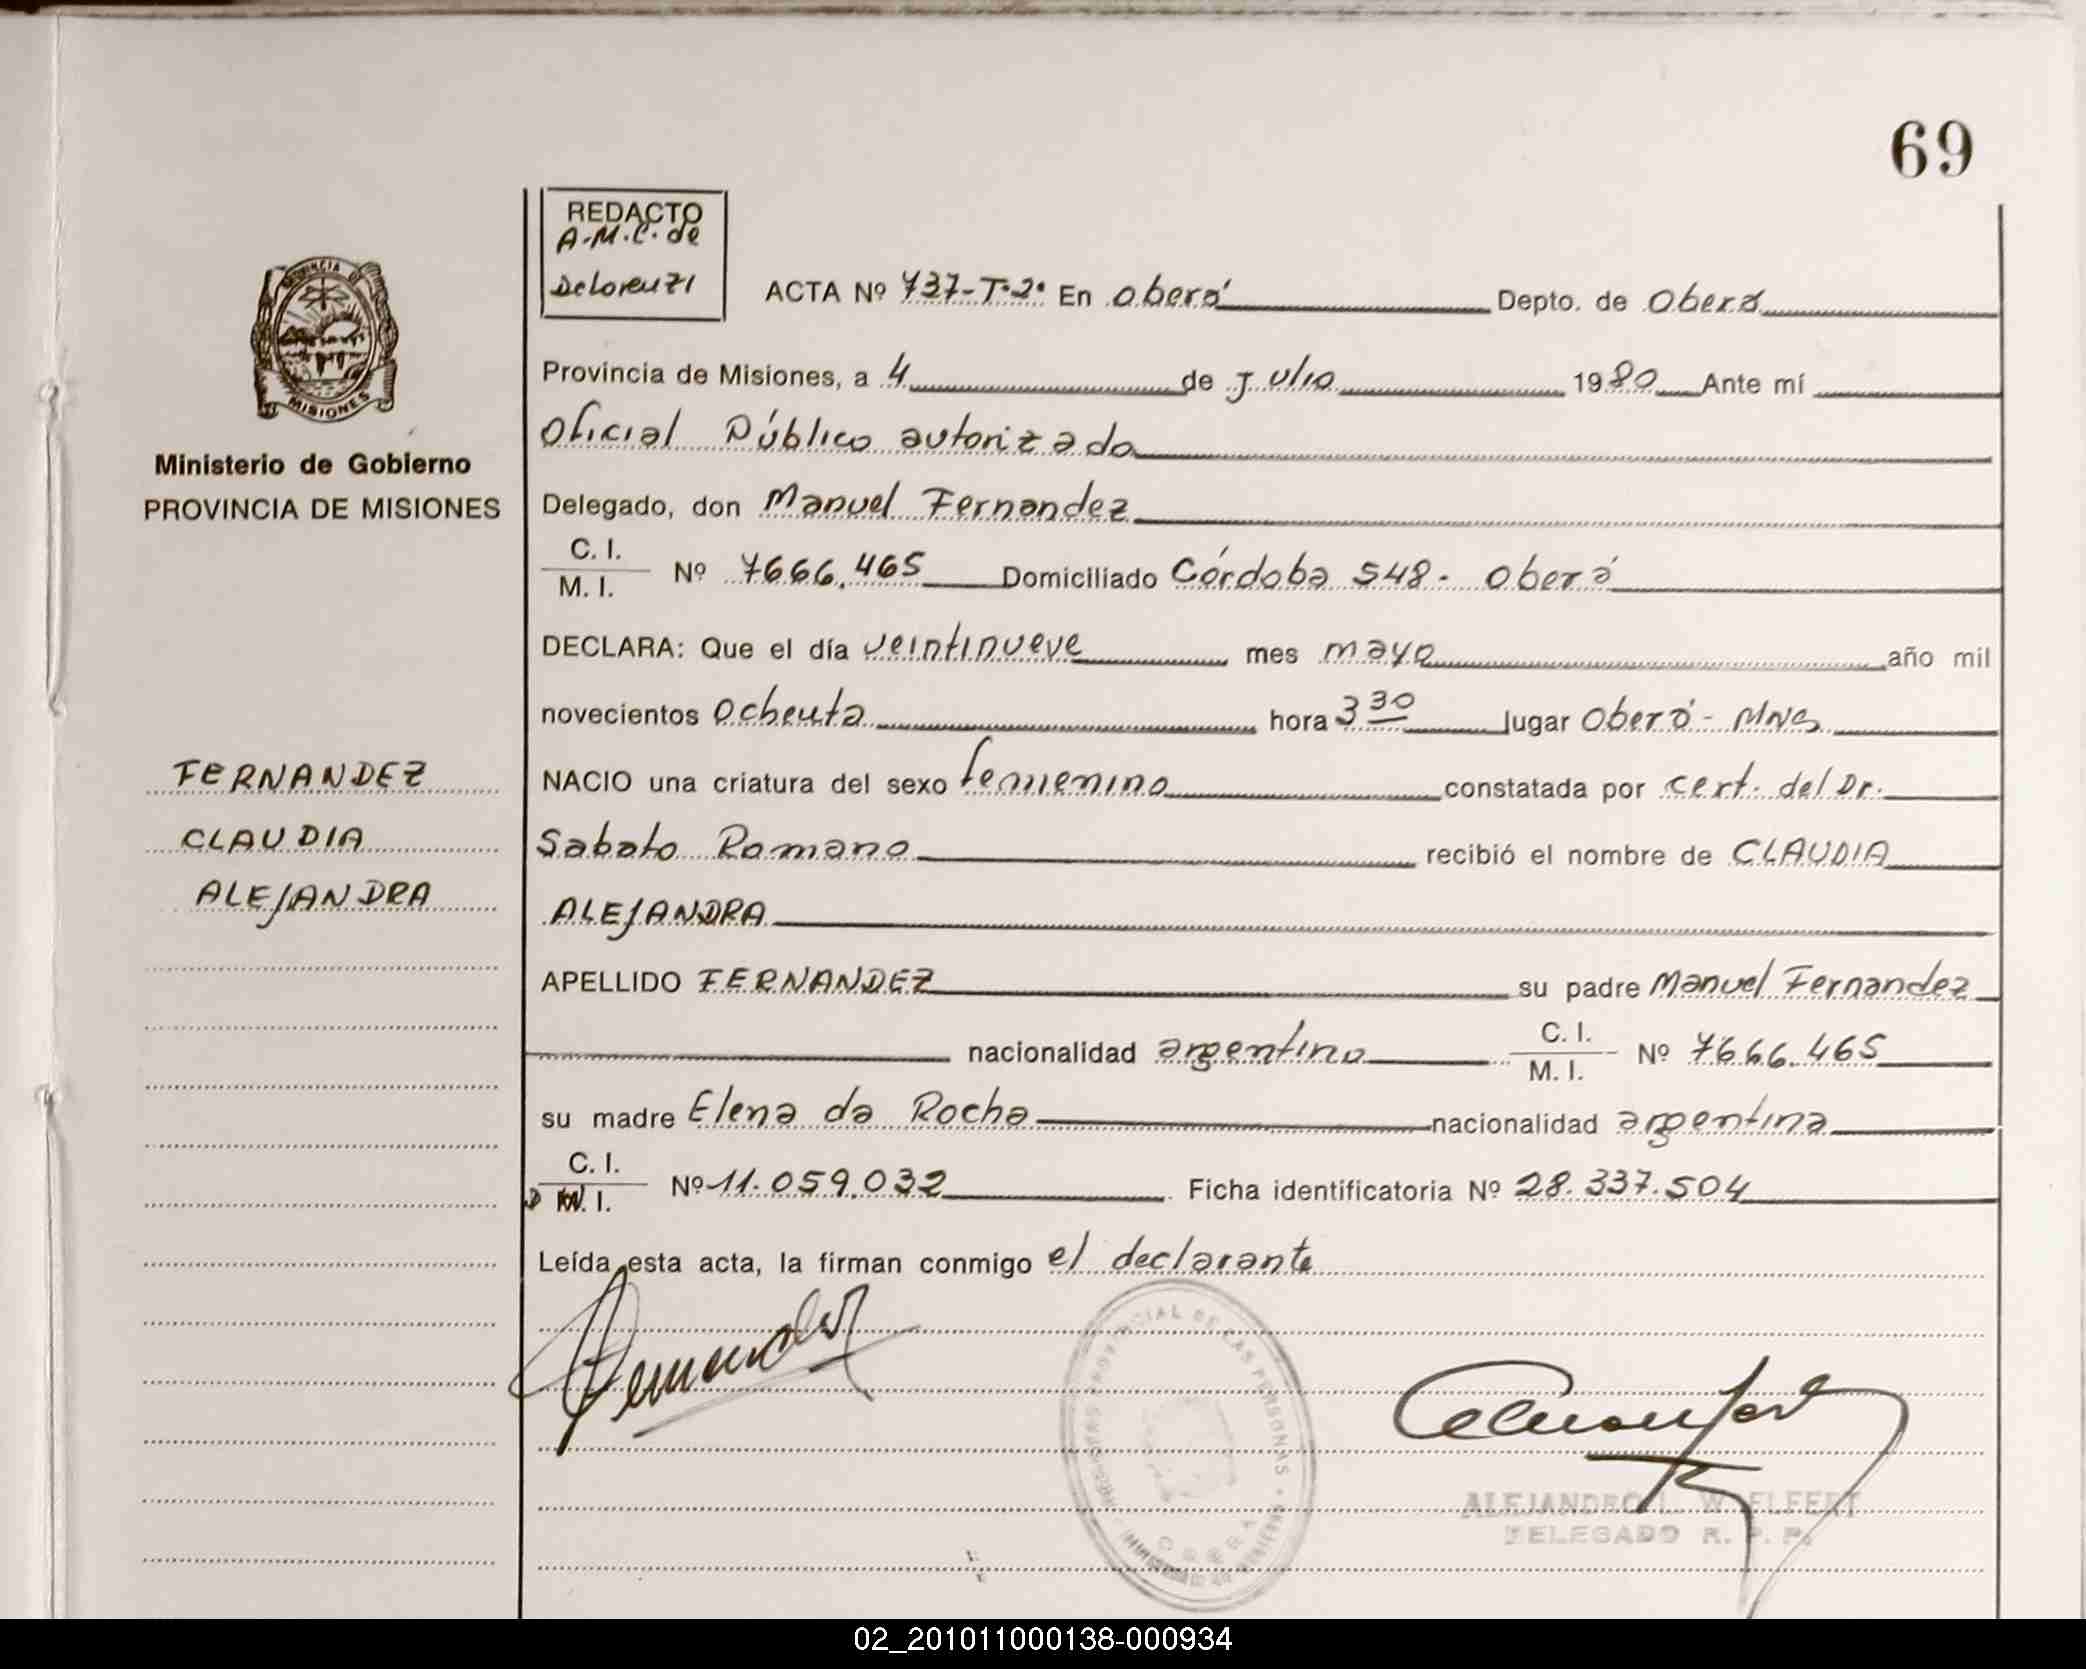 69
REDACTO
A.M.C. de
DeLorenzi
ACTA Nº 737-T.2º En Oberá Depto. de Oberá
PROVINCIA DE
MISIONES
Ministerio de Gobierno
PROVINCIA DE MISIONES
Provincia de Misiones, a 4 de Julio 1980 Ante mí
Oficial Público autorizado
Delegado, don Manuel Fernandez
C. I.
M. I. Nº 7666.465 Domiciliado Córdoba 548 - Oberá
DECLARA: Que el día veintinueve mes mayo año mil
novecientos ochenta hora 3 30 lugar Oberá - Mnes
FERNANDEZ
CLAUDIA
ALEJANDRA
NACIO una criatura del sexo femenino constatada por cert. del Dr.
Sabato Romano recibió el nombre de CLAUDIA
ALEJANDRA
APELLIDO FERNANDEZ su padre Manuel Fernandez
nacionalidad argentino C. I.
M. I. Nº 7666.465
su madre Elena da Rocha nacionalidad argentina
C. I.
D N. I. Nº 11.059.032 Ficha identificatoria Nº 28.337.504
Leída esta acta, la firman conmigo el declarante
Fernandez
PROVINCIAL DE LAS PERSONAS
OBERA
ALEJANDRO L. WELFERT
DELEGADO R. P. P.
02_201011000138-000934